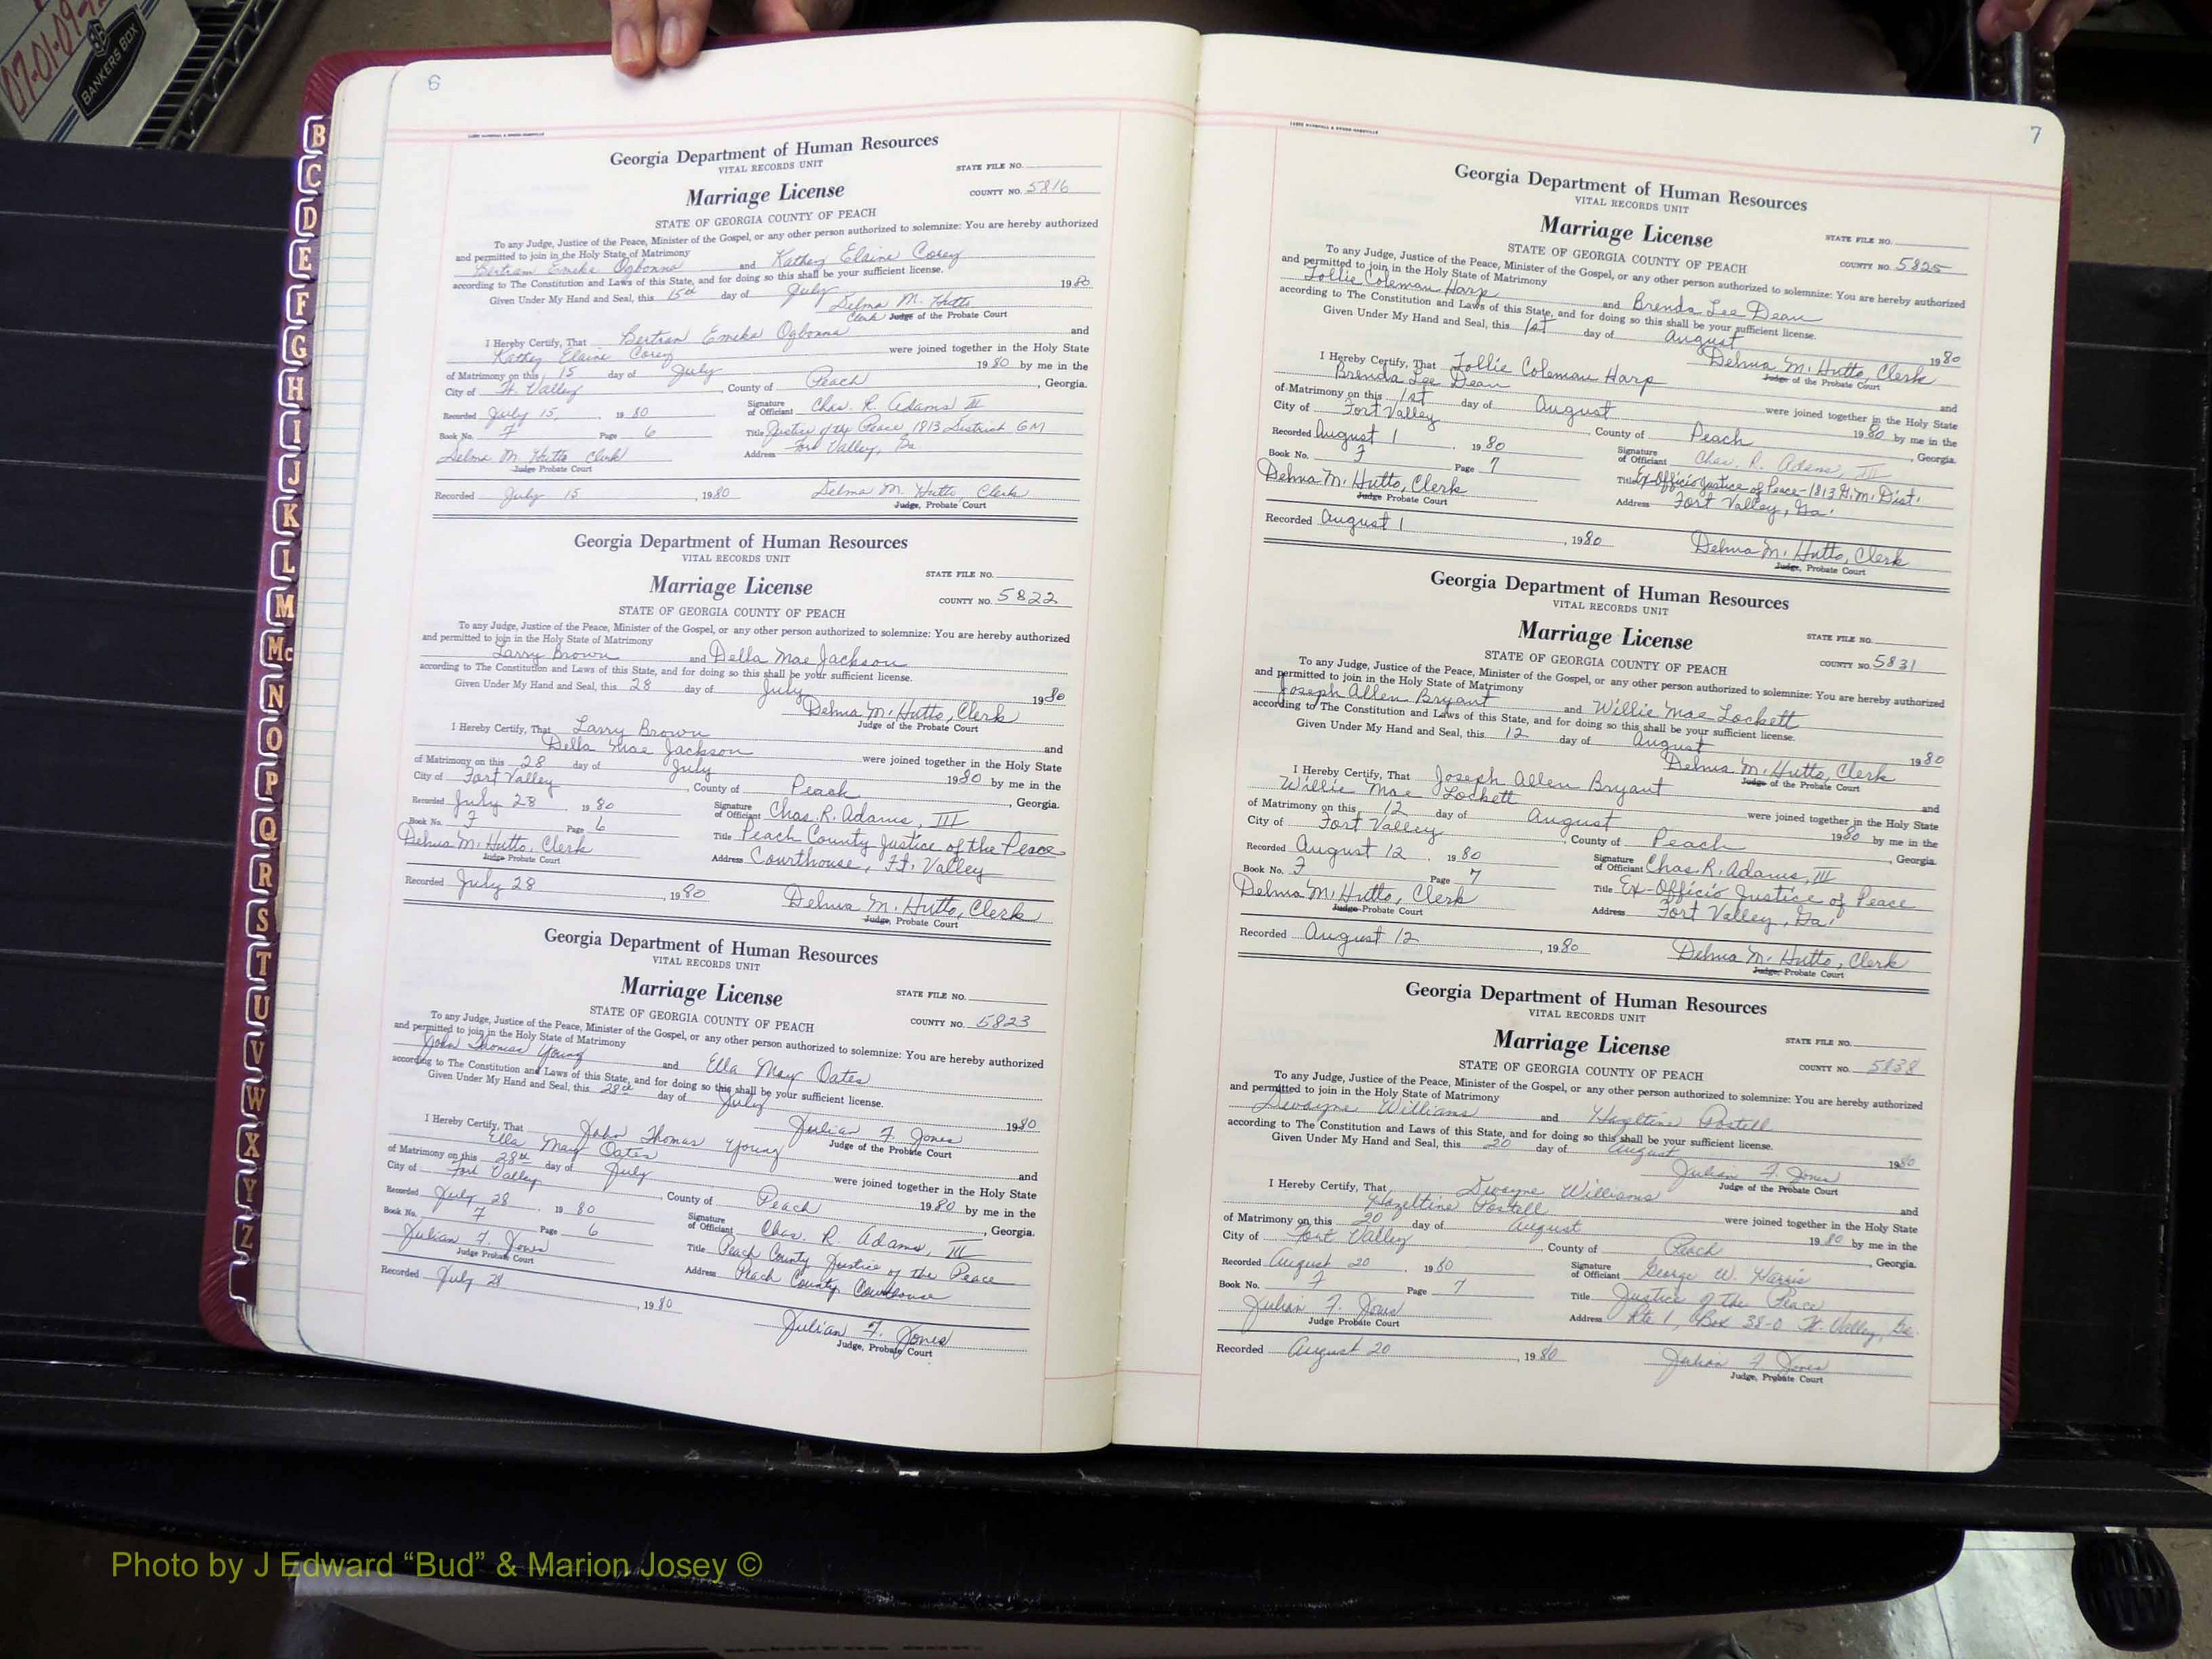 07-01-09-
BANKERS BOX
B
C
D
E
F
G
H
I
J
K
L
M
Mc
N
O
P
Q
R
S
T
U
V
W
X
Y
Z
6
Georgia Department of Human Resources
VITAL RECORDS UNIT
STATE FILE NO.
Marriage License
COUNTY NO. 5816
STATE OF GEORGIA COUNTY OF PEACH
To any Judge, Justice of the Peace, Minister of the Gospel, or any other person authorized to solemnize: You are hereby authorized
and permitted to join in the Holy State of Matrimony
Bertram Emeka Ogbonna and Kathey Elaine Corey
according to The Constitution and Laws of this State, and for doing so this shall be your sufficient license.
Given Under My Hand and Seal, this 15th day of July 1980
Delma M. Hutto
Clerk Judge of the Probate Court
I Hereby Certify, That Bertran Emeka Ogbonna and
Kathey Elaine Corey were joined together in the Holy State
of Matrimony on this 15 day of July 1980 by me in the
City of Ft. Valley, County of Peach, Georgia.
Recorded July 15, 1980 Signature of Officiant Chas. R. Adams III
Book No. 7 Page 6 Title Justice of the Peace, 1813 District GM
Delma M. Hutto Clerk Address Fort Valley, Ga
Judge Probate Court
Recorded July 15, 1980 Delma M. Hutto, Clerk
Judge, Probate Court
Georgia Department of Human Resources
VITAL RECORDS UNIT
STATE FILE NO.
Marriage License
COUNTY NO. 5822
STATE OF GEORGIA COUNTY OF PEACH
To any Judge, Justice of the Peace, Minister of the Gospel, or any other person authorized to solemnize: You are hereby authorized
and permitted to join in the Holy State of Matrimony
Larry Brown and Della Mae Jackson
according to The Constitution and Laws of this State, and for doing so this shall be your sufficient license.
Given Under My Hand and Seal, this 28 day of July 1980
Delma M. Hutto, Clerk
Judge of the Probate Court
I Hereby Certify, That Larry Brown and
Della Mae Jackson were joined together in the Holy State
of Matrimony on this 28 day of July 1980 by me in the
City of Fort Valley, County of Peach, Georgia.
Recorded July 28 1980 Signature of Officiant Chas. R. Adams, III
Book No. 7 Page 6 Title Peach County Justice of the Peace
Delma M. Hutto, Clerk Address Courthouse, Ft. Valley
Judge Probate Court
Recorded July 28, 1980 Delma M. Hutto, Clerk
Judge, Probate Court
Georgia Department of Human Resources
VITAL RECORDS UNIT
STATE FILE NO.
Marriage License
COUNTY NO. 5823
STATE OF GEORGIA COUNTY OF PEACH
To any Judge, Justice of the Peace, Minister of the Gospel, or any other person authorized to solemnize: You are hereby authorized
and permitted to join in the Holy State of Matrimony
John Thomas Young and Ella May Oates
according to The Constitution and Laws of this State, and for doing so this shall be your sufficient license.
Given Under My Hand and Seal, this 28th day of July 1980
Julian F. Jones
Judge of the Probate Court
I Hereby Certify, That John Thomas Young and
Ella May Oates were joined together in the Holy State
of Matrimony on this 28th day of July 1980 by me in the
City of Fort Valley, County of Peach, Georgia.
Recorded July 28, 1980 Signature of Officiant Chas. R. Adams, III
Book No. 7 Page 6 Title Peach County Justice of the Peace
Julian F. Jones Address Peach County Courthouse
Judge Probate Court
Recorded July 28, 1980
Julian F. Jones
Judge, Probate Court
7
Georgia Department of Human Resources
VITAL RECORDS UNIT
STATE FILE NO.
Marriage License
COUNTY NO. 5825
STATE OF GEORGIA COUNTY OF PEACH
To any Judge, Justice of the Peace, Minister of the Gospel, or any other person authorized to solemnize: You are hereby authorized
and permitted to join in the Holy State of Matrimony
Tollie Coleman Harp and Brenda Lee Dean
according to The Constitution and Laws of this State, and for doing so this shall be your sufficient license.
Given Under My Hand and Seal, this 1st day of August 1980
Delma M. Hutto, Clerk
Judge of the Probate Court
I Hereby Certify, That Tollie Coleman Harp and
Brenda Lee Dean were joined together in the Holy State
of Matrimony on this 1st day of August 1980 by me in the
City of Fort Valley, County of Peach, Georgia.
Recorded August 1, 1980 Signature of Officiant Chas. R. Adams, III
Book No. 7 Page 7 Title Ex-Officio Justice of Peace-1813 G.M. Dist.
Delma M. Hutto, Clerk Address Fort Valley, Ga.
Judge Probate Court
Recorded August 1, 1980 Delma M. Hutto, Clerk
Judge, Probate Court
Georgia Department of Human Resources
VITAL RECORDS UNIT
STATE FILE NO.
Marriage License
COUNTY NO. 5831
STATE OF GEORGIA COUNTY OF PEACH
To any Judge, Justice of the Peace, Minister of the Gospel, or any other person authorized to solemnize: You are hereby authorized
and permitted to join in the Holy State of Matrimony
Joseph Allen Bryant and Willie Mae Lockett
according to The Constitution and Laws of this State, and for doing so this shall be your sufficient license.
Given Under My Hand and Seal, this 12 day of August 1980
Delma M. Hutto, Clerk
Judge of the Probate Court
I Hereby Certify, That Joseph Allen Bryant and
Willie Mae Lockett were joined together in the Holy State
of Matrimony on this 12 day of August 1980 by me in the
City of Fort Valley, County of Peach, Georgia.
Recorded August 12, 1980 Signature of Officiant Chas. R. Adams, III
Book No. 7 Page 7 Title Ex-Officio Justice of Peace
Delma M. Hutto, Clerk Address Fort Valley, Ga.
Judge Probate Court
Recorded August 12, 1980 Delma M. Hutto, Clerk
Judge, Probate Court
Georgia Department of Human Resources
VITAL RECORDS UNIT
STATE FILE NO.
Marriage License
COUNTY NO. 5838
STATE OF GEORGIA COUNTY OF PEACH
To any Judge, Justice of the Peace, Minister of the Gospel, or any other person authorized to solemnize: You are hereby authorized
and permitted to join in the Holy State of Matrimony
Dwayne Williams and Hazeltine Postell
according to The Constitution and Laws of this State, and for doing so this shall be your sufficient license.
Given Under My Hand and Seal, this 20 day of August 1980
Julian F. Jones
Judge of the Probate Court
I Hereby Certify, That Dwayne Williams and
Hazeltine Postell were joined together in the Holy State
of Matrimony on this 20 day of August 1980 by me in the
City of Fort Valley, County of Peach, Georgia.
Recorded August 20, 1980 Signature of Officiant George W. Harris
Book No. 7 Page 7 Title Justice of the Peace
Julian F. Jones Address Rte 1, Box 38-0 Ft. Valley, Ga.
Judge Probate Court
Recorded August 20, 1980 Julian F Jones
Judge, Probate Court
Photo by J Edward “Bud” & Marion Josey ©